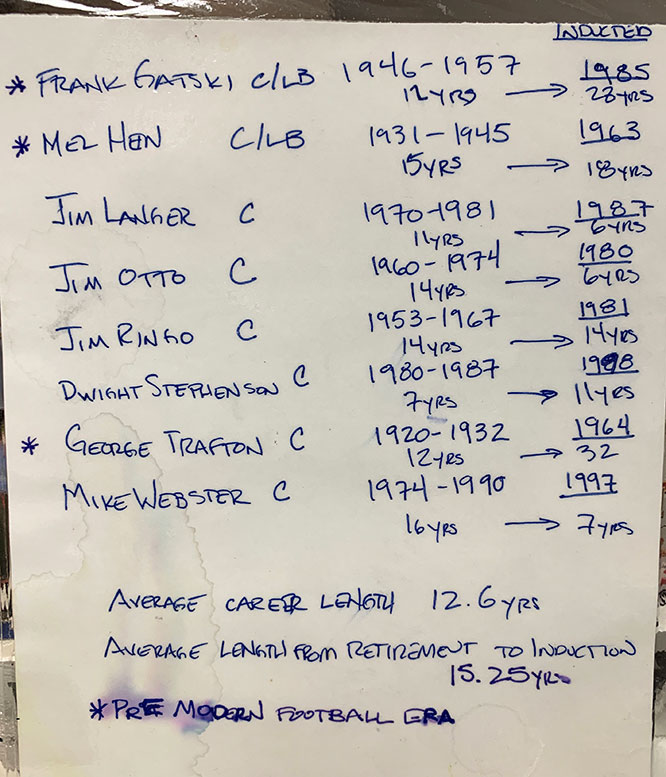 INDUCTED
* FRANK GATSKI C/LB 1946-1957 1985
12YRS → 28YRS
* MEL HEN C/LB 1931-1945 1963
15YRS → 18YRS
JIM LANGER C 1970-1981 1987
11YRS → 6YRS
JIM OTTO C 1960-1974 1980
14YRS → 6YRS
JIM RINGO C 1953-1967 1981
14YRS → 14YRS
DWIGHT STEPHENSON C 1980-1987 1998
7YRS → 11YRS
* GEORGE TRAFTON C 1920-1932 1964
12YRS → 32
MIKE WEBSTER C 1974-1990 1997
16YRS → 7YRS
AVERAGE CAREER LENGTH 12.6YRS
AVERAGE LENGTH FROM RETIREMENT TO INDUCTION
15.25YRS
*PRE MODERN FOOTBALL ERA